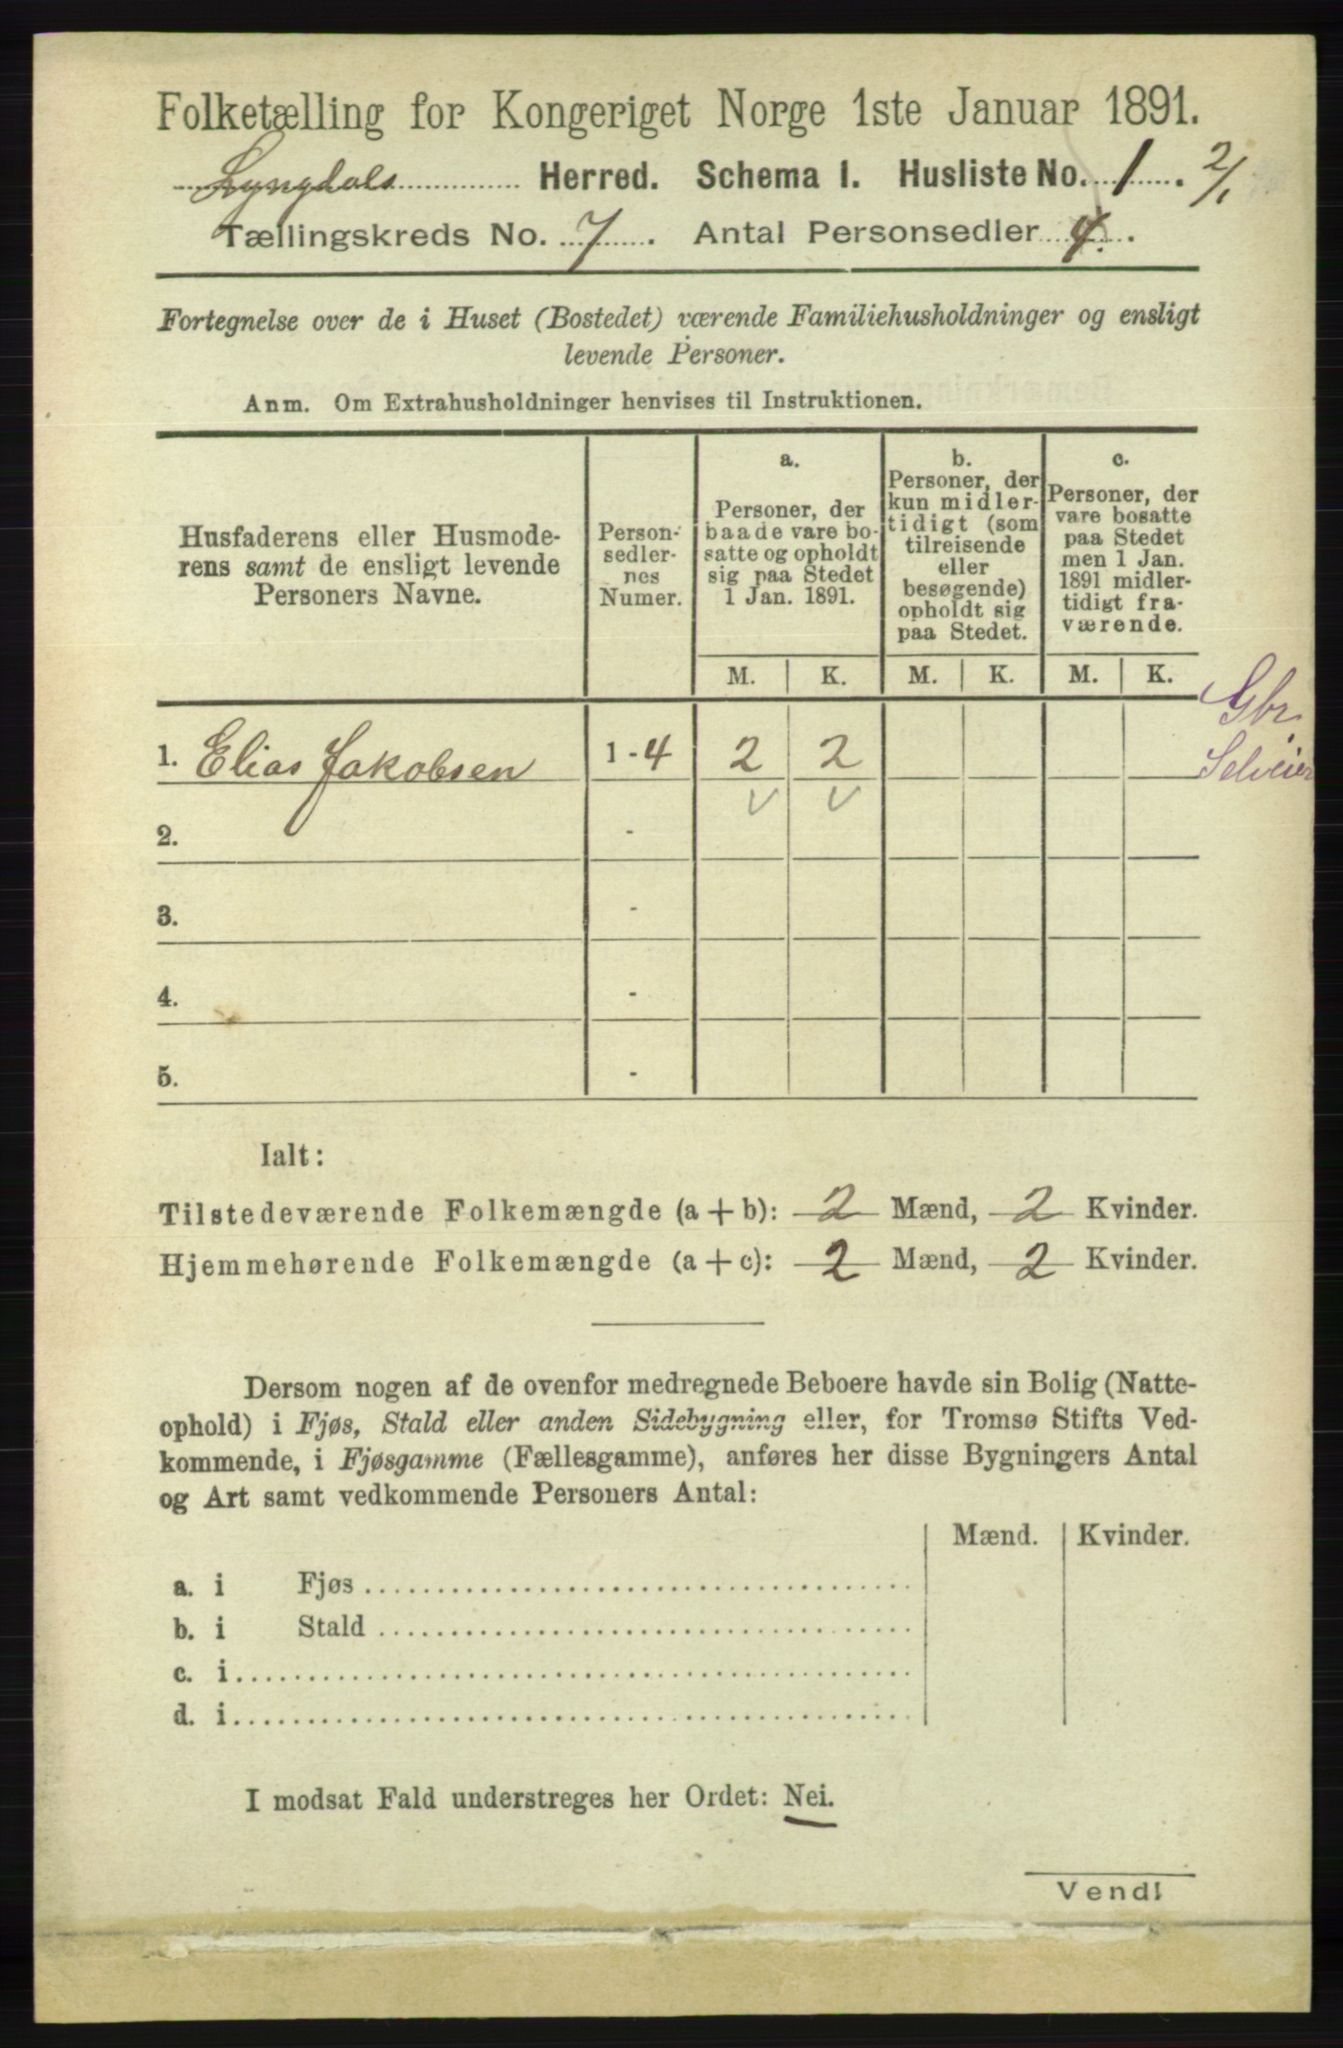 Folketælling for Kongeriget Norge 1ste Januar 1891.
Lyngdals Herred. Schema I. Husliste No. 1. 2/1
Tællingskreds No. 7. Antal Personsedler 4.
Fortegnelse over de i Huset (Bostedet) værende Familiehusholdninger og ensligt
levende Personer.
Anm. Om Extrahusholdninger henvises til Instruktionen.
Husfaderens eller Husmode-
rens samt de ensligt levende
Personers Navne.
Person-
sedler-
nes
Numer.
a.
Personer, der
baade vare bo-
satte og opholdt
sig paa Stedet
1 Jan. 1891.
b.
Personer, der
kun midler-
tidigt (som
tilreisende
eller
besøgende)
opholdt sig
paa Stedet.
c.
Personer, der
vare bosatte
paa Stedet
men 1 Jan.
1891 midler-
tidigt fra-
værende.
M. K. M. K. M. K.
Gbr.
Selveier
1. Elias Jakobsen 1 - 4 2 2
2. -
3. -
4. -
5. -
Ialt:
Tilstedeværende Folkemængde (a + b): 2 Mænd, 2 Kvinder.
Hjemmehørende Folkemængde (a + c): 2 Mænd, 2 Kvinder.
Dersom nogen af de ovenfor medregnede Beboere havde sin Bolig (Natte-
ophold) i Fjøs, Stald eller anden Sidebygning eller, for Tromsø Stifts Ved-
kommende, i Fjøsgamme (Fællesgamme), anføres her disse Bygningers Antal
og Art samt vedkommende Personers Antal:
Mænd. Kvinder.
a. i Fjøs
b. i Stald
c. i
d. i
I modsat Fald understreges her Ordet: Nei.
Vend!